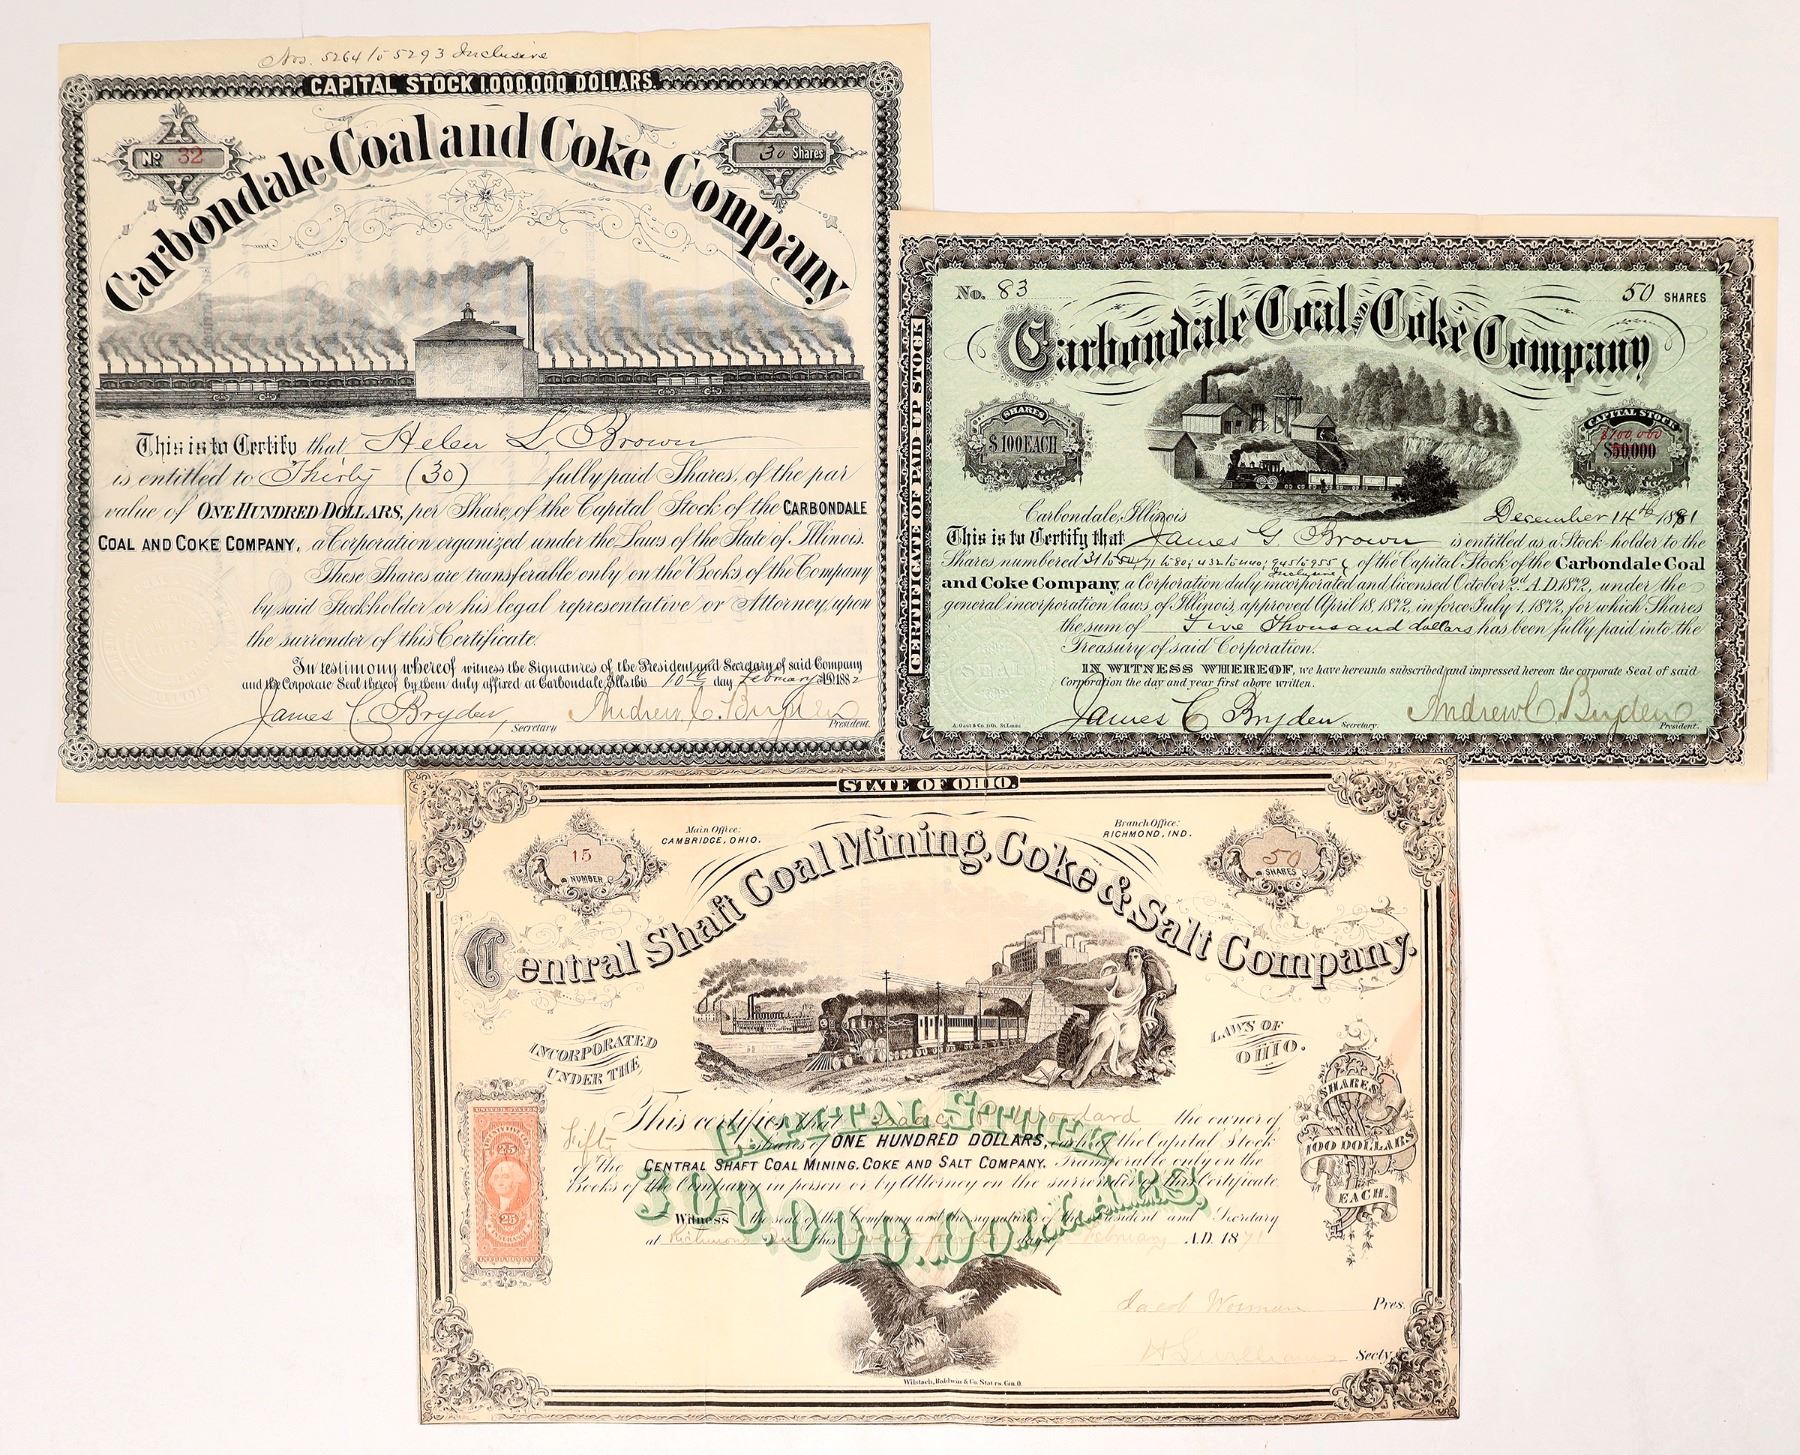 Nos. 5264 to 5293 Inclusive
CAPITAL STOCK 1,000,000 DOLLARS.
No 32
30 Shares
Carbondale Coal and Coke Company
This is to Certify that Helen L. Brown
is entitled to Thirty (30) fully paid Shares, of the par
value of ONE HUNDRED DOLLARS, per Share, of the Capital Stock of the CARBONDALE
COAL AND COKE COMPANY, a Corporation organized under the Laws of the State of Illinois.
These Shares are transferable only on the Books of the Company
by said Stockholder or his legal representative or Attorney, upon
the surrender of this Certificate.
In testimony whereof witness the Signatures of the President and Secretary of said Company
and the Corporate Seal thereof by them duly affixed at Carbondale, Ills. this 10th day February AD 1882
James C Bryden Secretary
Andrew C. Bryden President.
CERTIFICATE OF PAID UP STOCK
No. 83
50 SHARES
Carbondale Coal and Coke Company
SHARES
$100 EACH
CAPITAL STOCK
$100,000
$50,000
Carbondale, Illinois December 14th 1881
This is to Certify that James G Brown is entitled as a Stock-holder to the
Shares numbered of the Capital Stock of the Carbondale Coal
Inclusive
and Coke Company, a Corporation duly incorporated and licensed October 2d A.D. 1872, under the
general incorporation laws of Illinois, approved April 18, 1872, in force July 1, 1872, for which Shares
the sum of Five Thousand dollars has been fully paid into the
Treasury of said Corporation.
IN WITNESS WHEREOF, we have hereunto subscribed and impressed hereon the corporate Seal of said
Corporation the day and year first above written.
SEAL
James C Bryden Secretary.
Andrew C. Bryden President.
A. Gast & Co. Lith. St. Louis
STATE OF OHIO.
75
Main Office:
CAMBRIDGE, OHIO.
Branch Office:
RICHMOND, IND.
15
NUMBER
50
SHARES
Central Shaft Coal Mining, Coke & Salt Company.
INCORPORATED
UNDER THE
LAWS OF
OHIO.
This certifies that Isaac P. Woodard the owner of
Fifty Shares of ONE HUNDRED DOLLARS, each of the Capital Stock
of the CENTRAL SHAFT COAL MINING, COKE AND SALT COMPANY. Transferable only on the
Books of the Company in person or by Attorney on the surrender of this Certificate.
Witness the seal of the Company and the signatures of the President and Secretary
at Richmond Ind this day of February A.D. 1871
CAPITAL STOCK
300,000.DOLLARS.
SHARES
100 DOLLARS
EACH.
UNITED STATES
25
25
Jacob Worman Pres.
Secty.
Wilstach, Baldwin & Co. Staters. Cin. O.